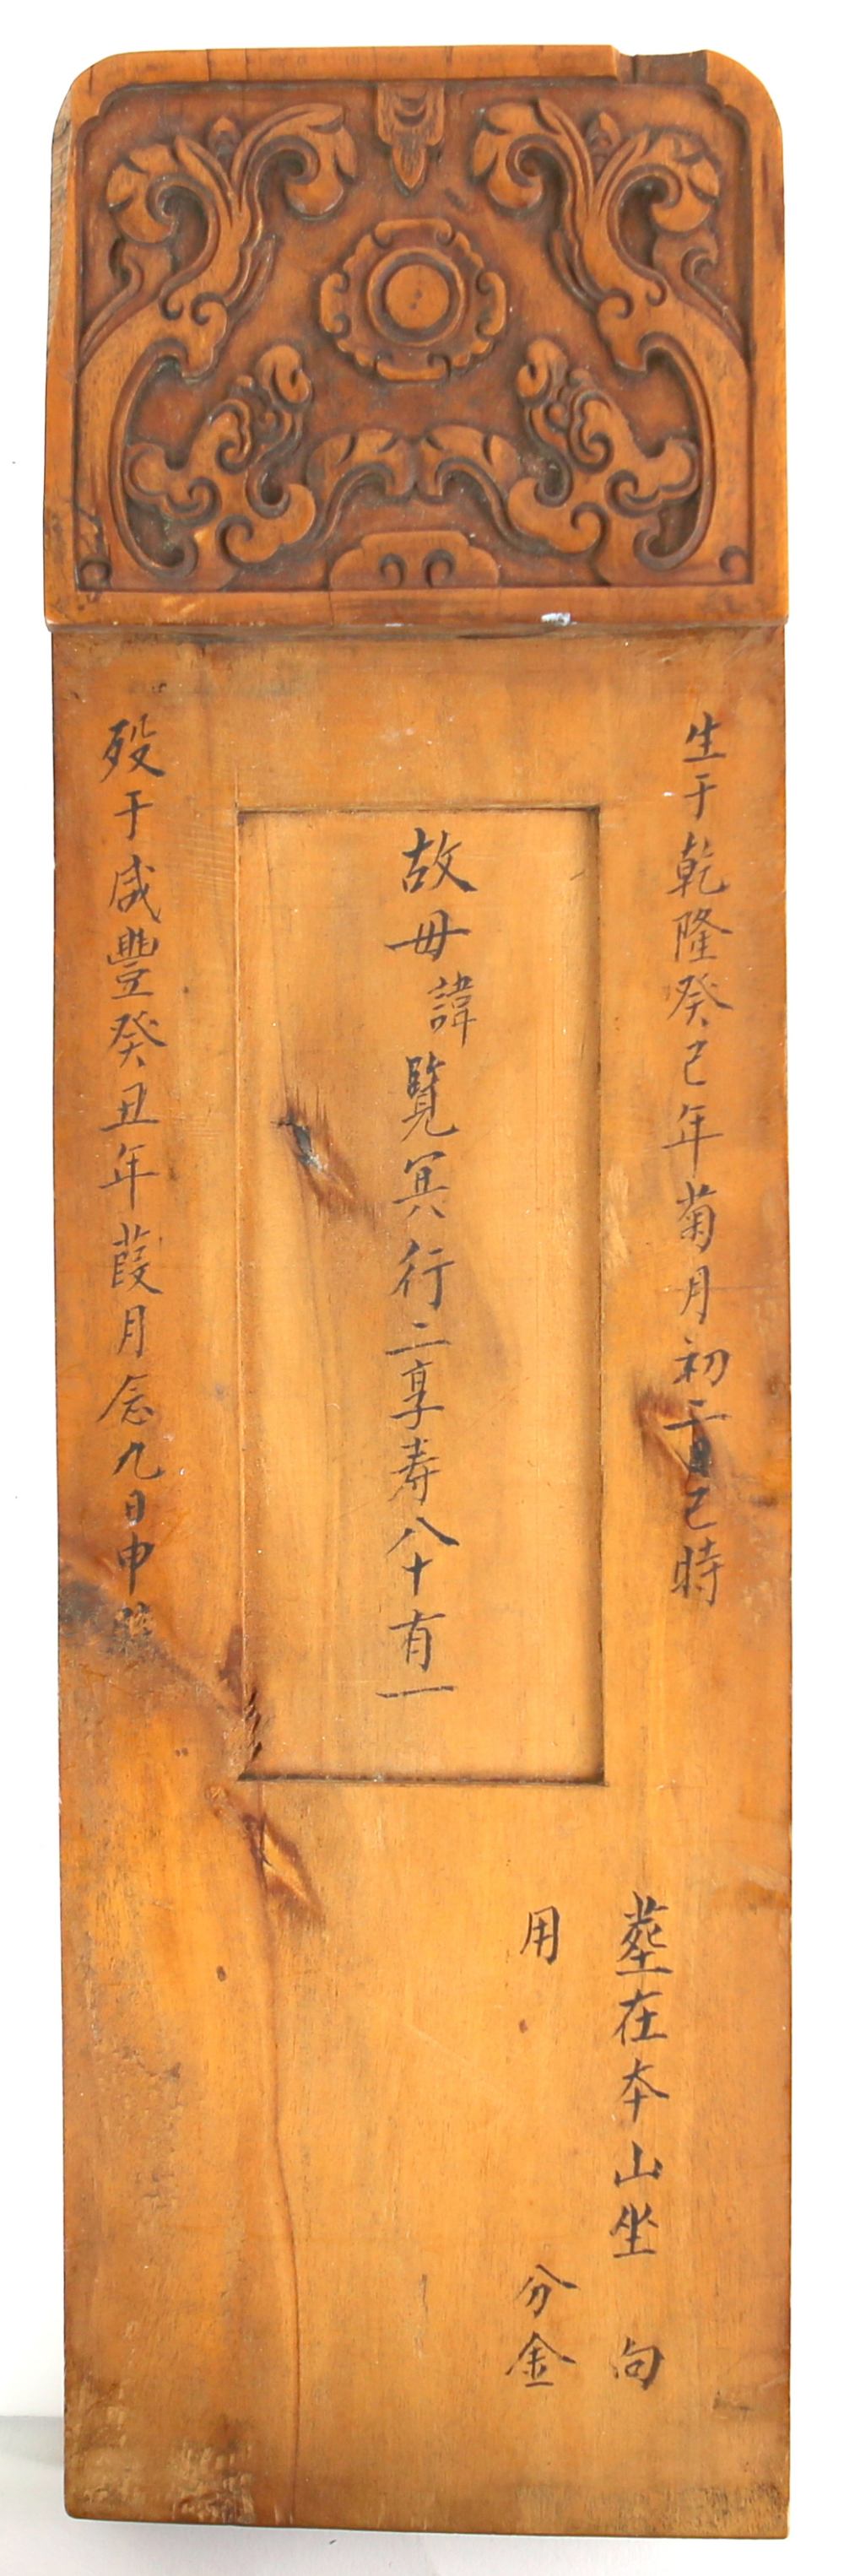 生于乾隆癸巳年菊月初日巳時
故母諱覽冥行二享寿八十有一
歿于咸豐癸丑年葭月念九日申時
塟在本山坐 向
用 分金